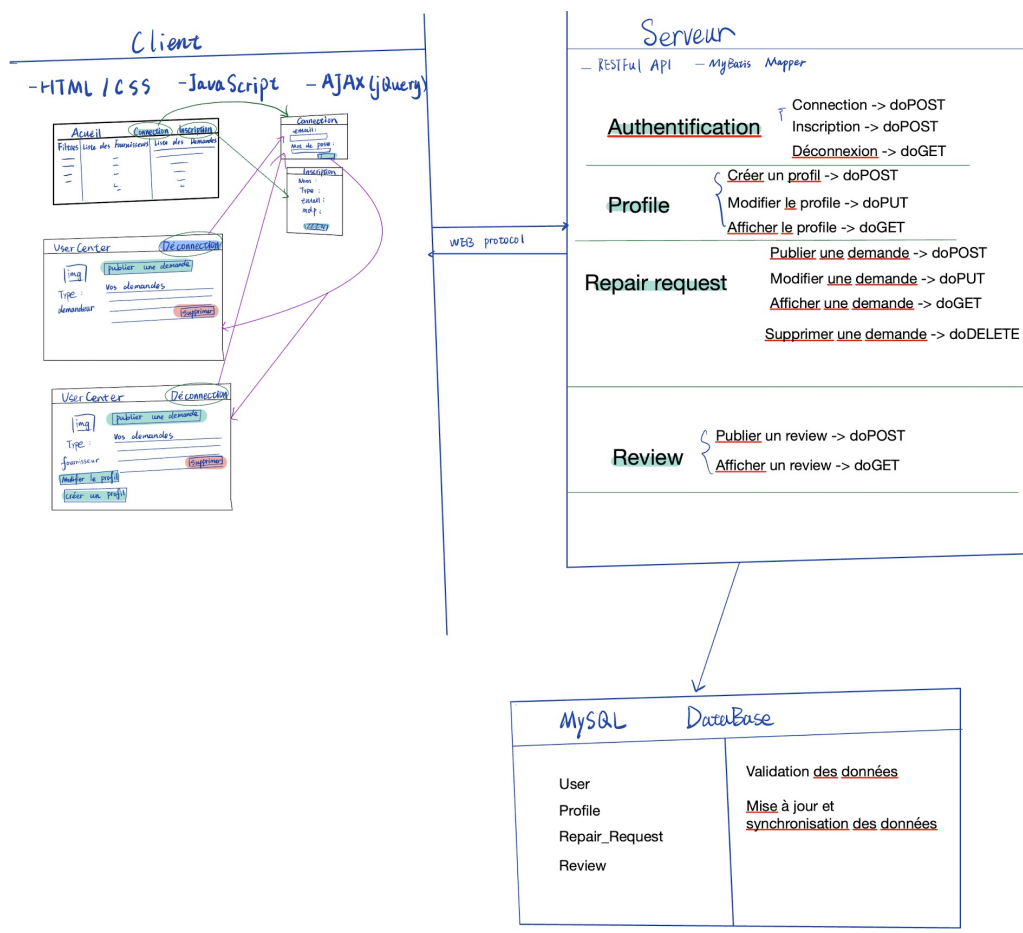 Client
-HTML / CSS -JavaScript - AJAX (jQuery)
Acueil Connection Inscription
Filtres Liste des Fournisseurs Liste des Demandes
Connection
email:
Mot de passe:
Inscription
Nom :
Type :
Email :
mdp :
User Center Déconnection
img
publier une demande
Vos demandes
Type :
demandeur
supprimer
User Center Déconnection
img
publier une demande
Vos demandes
Type :
fournisseur
supprimer
Modifier le profil
créer un profil
WEB protocol
Serveur
- RESTFul API - MyBatis Mapper
Authentification
Connection -> doPOST
Inscription -> doPOST
Déconnexion -> doGET
Profile
Créer un profil -> doPOST
Modifier le profile -> doPUT
Afficher le profile -> doGET
Repair request
Publier une demande -> doPOST
Modifier une demande -> doPUT
Afficher une demande -> doGET
Supprimer une demande -> doDELETE
Review
Publier un review -> doPOST
Afficher un review -> doGET
MySQL DataBase
User
Profile
Repair_Request
Review
Validation des données
Mise à jour et
synchronisation des données